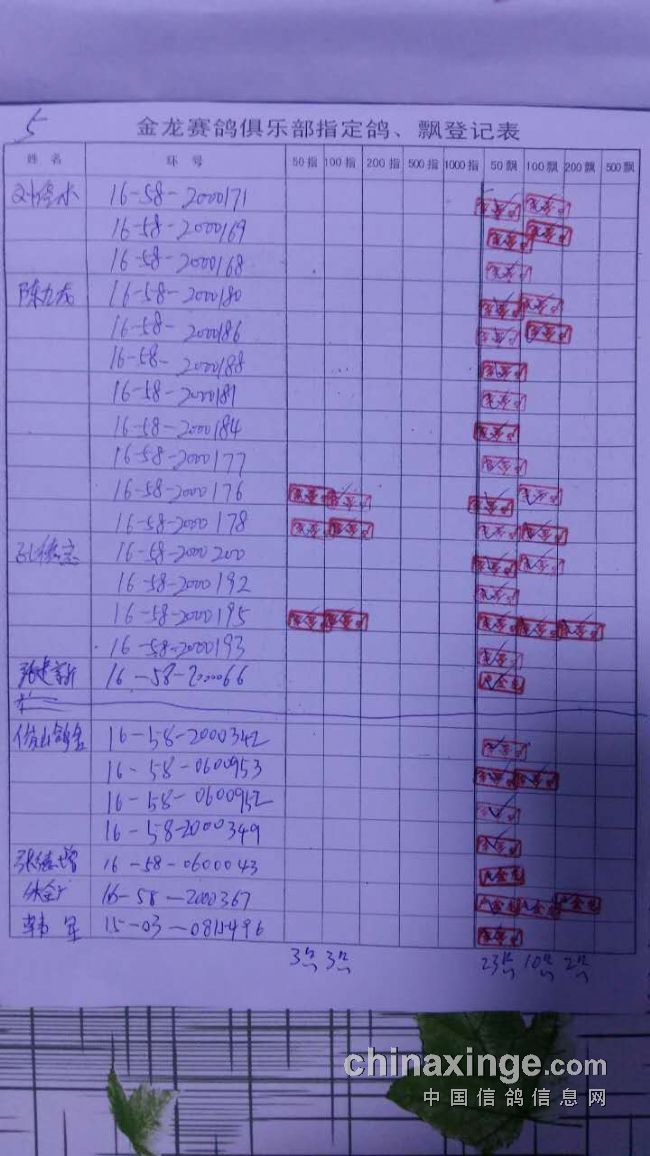 5
金龙赛鸽俱乐部指定鸽、飘登记表
姓 名 环 号 50指 100指 200指 500指 1000指 50飘 100飘 200飘 500飘
16-58-2000171
16-58-2000169
16-58-2000168
陈九龙 16-58-2000180
16-58-2000186
16-58-2000188
16-58-2000181
16-58-2000184
16-58-2000177
16-58-2000176
16-58-2000178
16-58-2000200
16-58-2000192
16-58-2000195
16-58-2000193
张建新 16-58-2000066
16-58-2000342
16-58-0600953
16-58-0600952
16-58-2000349
张德增 16-58-0600043
16-58-2000367
韩军 15-03-0811496
3只 3只 23只 10只 2只
chinaxinge.com
中国信鸽信息网